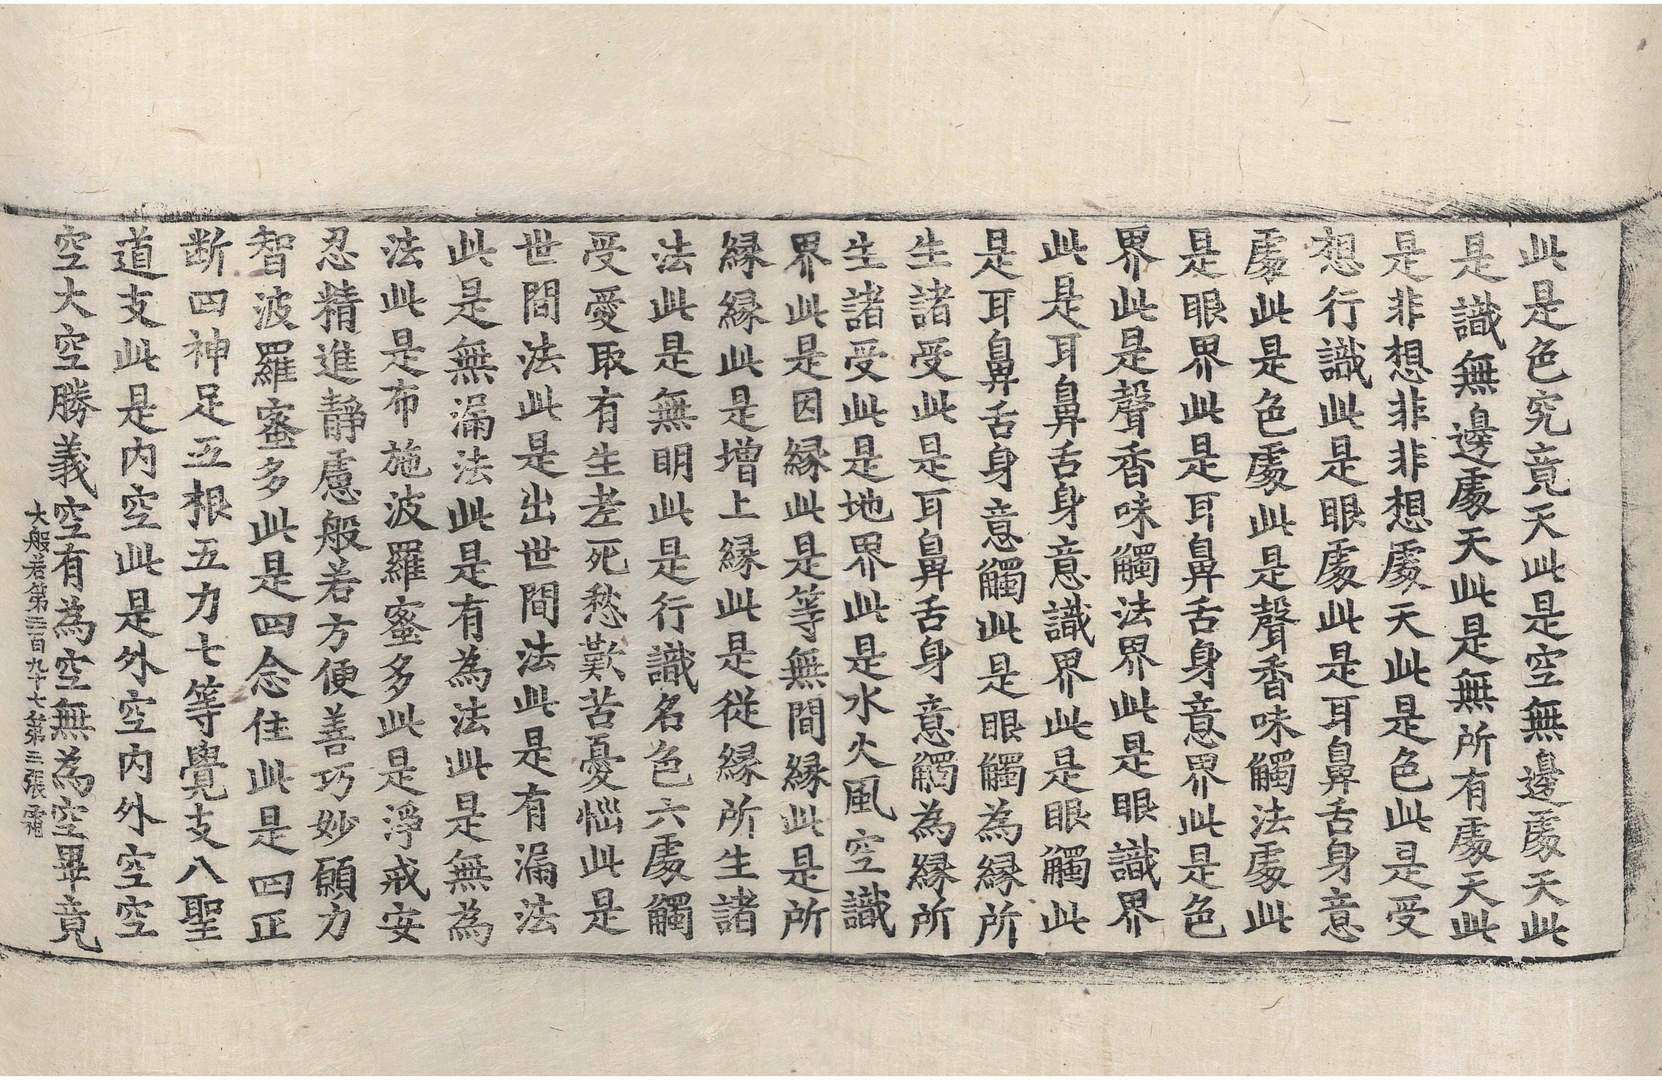 此是色究竟天此是空無邊處天此
是識無邊處天此是無所有處天此
是非想非非想處天此是色此是受
想行識此是眼處此是耳鼻舌身意
處此是色處此是聲香味觸法處此
是眼界此是耳鼻舌身意界此是色
界此是聲香味觸法界此是眼識界
此是耳鼻舌身意識界此是眼觸此
是耳鼻舌身意觸此是眼觸為緣所
生諸受此是耳鼻舌身意觸為緣所
生諸受此是地界此是水火風空識
界此是因緣此是等無間緣此是所
緣緣此是增上緣此是從緣所生諸
法此是無明此是行識名色六處觸
受愛取有生老死愁歎苦憂惱此是
世間法此是出世間法此是有漏法
此是無漏法此是有為法此是無為
法此是布施波羅蜜多此是淨戒安
忍精進靜慮般若方便善巧妙願力
智波羅蜜多此是四念住此是四正
断四神足五根五力七等覺支八聖
道支此是内空此是外空内外空空
空大空勝義空有為空無為空畢竟
大般若第三百九十七第三張 霜